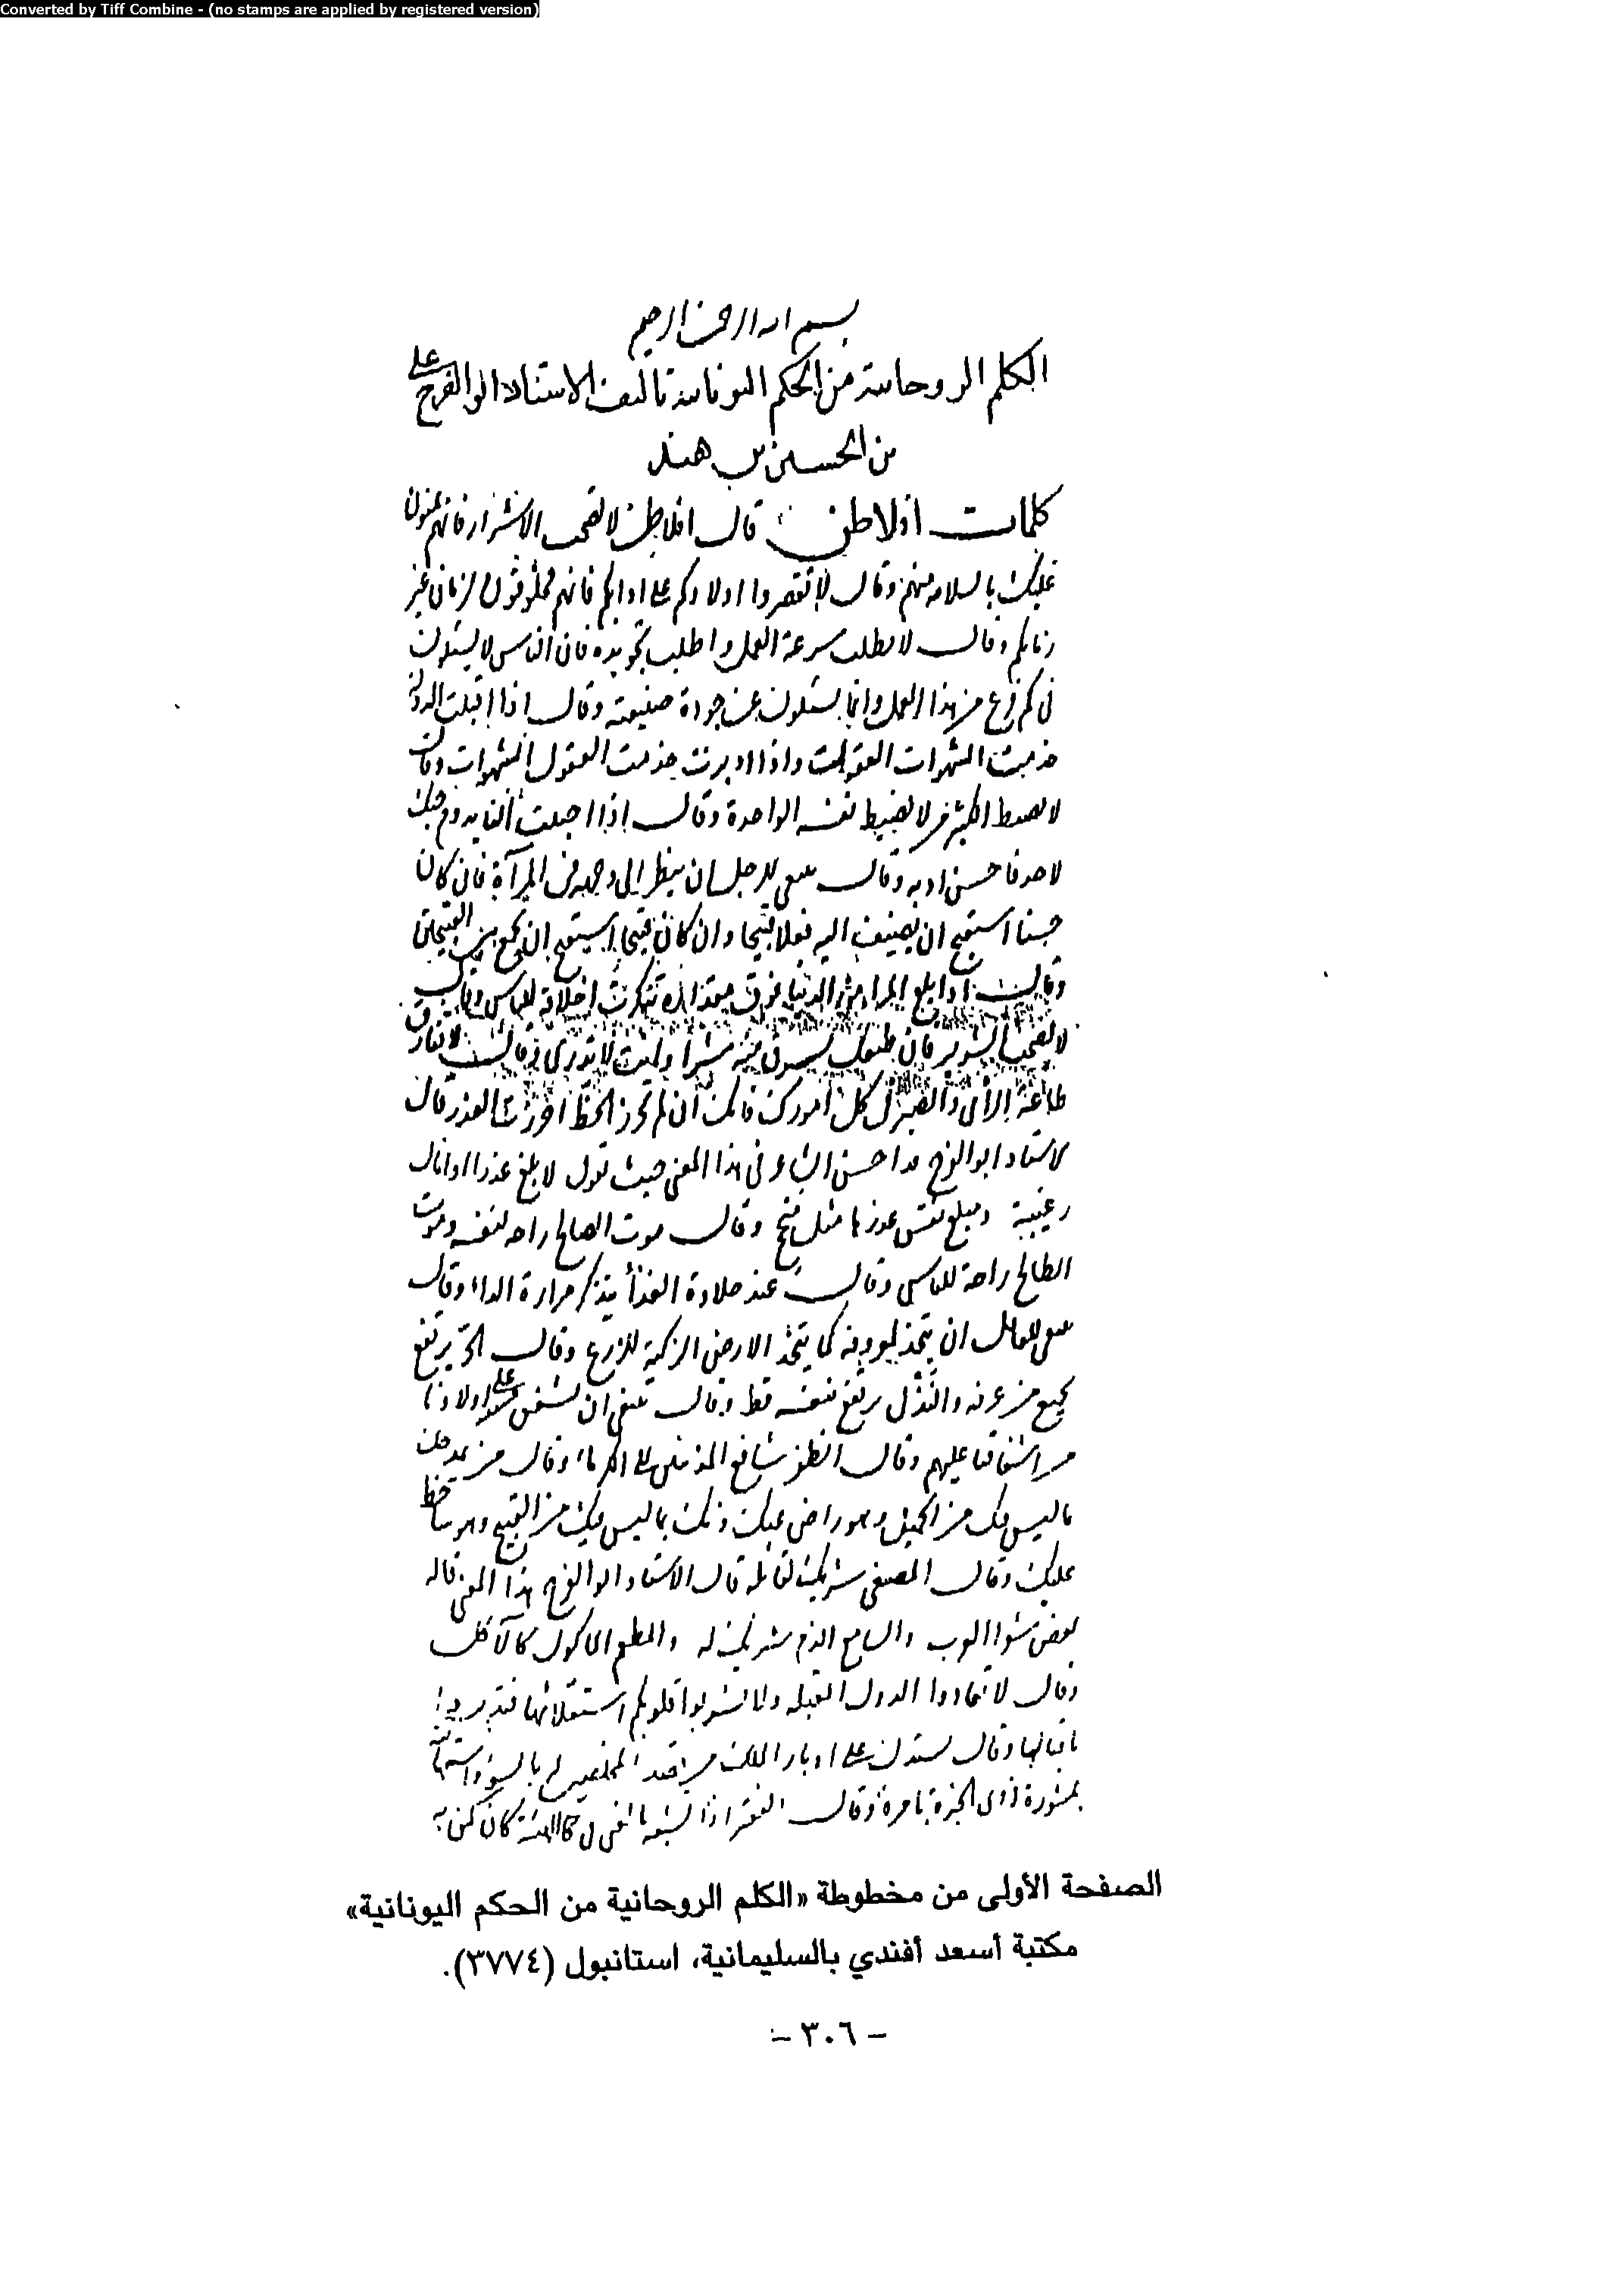 Converted by Tiff Combine - (no stamps are applied by registered version)
بسم الله الرحمن الرحيم
الكلم الروحانية من الحكم اليونانية تاليف الاستاد ابو الفرج على
بن الحسين بن هند
كلمات افلاطن قال افلاطن لا تصحب الاشرار فانهم يمنون
عليك بالسلامة منهم وقال لا تقصروا اولادكم على ادابكم فانهم مخلوقون لزمان غير
زمانكم وقال لا تطلب سرعة العمل واطلب تجويده فان الناس لا يسئلون
فى كم فرغ من هذا العمل وانما يسئلون عن جودة صنيعته وقال اذا اقبلت الدولة
خدمت الشهوات العقول واذا ادبرت خدمت العقول الشهوات وقال
لا يضبط الكثير من لا يضبط نفسه الواحدة وقال اذا احببت ان يدوم حبك
لاحد فاحسن ادبه وقال ينبغى للرجل ان ينظر الى وجهه فى المرآة فان كان
حسنا استقبح ان يضيف اليه فعلا قبيحا وان كان قبيحا استقبح ان يجمع بين القبيحين
وقال اذا بلغ المرء من الدنيا فوق مقداره تنكرت اخلاقه للناس وقال
لا تصحب الشرير فان طبعك يسرق منه شرا وانت لا تدرى وقال لا تفارق
طاعة الرأى والصبر فى كل امورك فانك ان لم تحرز الحظ احرزت العذر قال
الاستاد ابو الفرج ما احسن الشاعر فى هذا المعنى حيث يقول لا بلغ عذرا او انال
رغيبة ومبلغ نفس عذرها مثل منجح وقال موت الصالح راحة لنفسه وموت
الطالح راحة للناس وقال عند حلاوة الغذأ يتذكر مرارة الداء وقال
ينبغى للعاقل ان يتخذ لمعروفه كما يتخذ الارض الزكية للزرع وقال الحر يرتفع
بجميع من عرفه والنذل يرتفع بنفسه فقط وقال ينبغى ان نشفق على اولادنا
من اشفاقنا عليهم وقال انظر شافع المذنبين الى الكرماء وقال من مدحك
بما ليس فيك من الجميل وهو راض عنك ذمك بما ليس فيك من القبيح وهو ساخط
عليك وقال المصغى شريك لقائله قال الاستاد ابو الفرج هذا المعنى قاله
بعض شعرا العرب والسامع الذم شريك له والمطعم الماكول كالآكل
وقال لا تعادوا الدول المقبلة ولا تشربوا قلوبكم استقلالها فتدبروا
باقبالها وقال يستدل على ادبار الملك من
بمشورة ذوى الخبرة وقال الفقير اذا تشبه بالغنى كان كمن به
الصفحة الأولى من مخطوطة «الكلم الروحانية من الحكم اليونانية»
مكتبة أسعد أفندي بالسليمانية، استانبول (٣٧٧٤).
- ٣٠٦ -